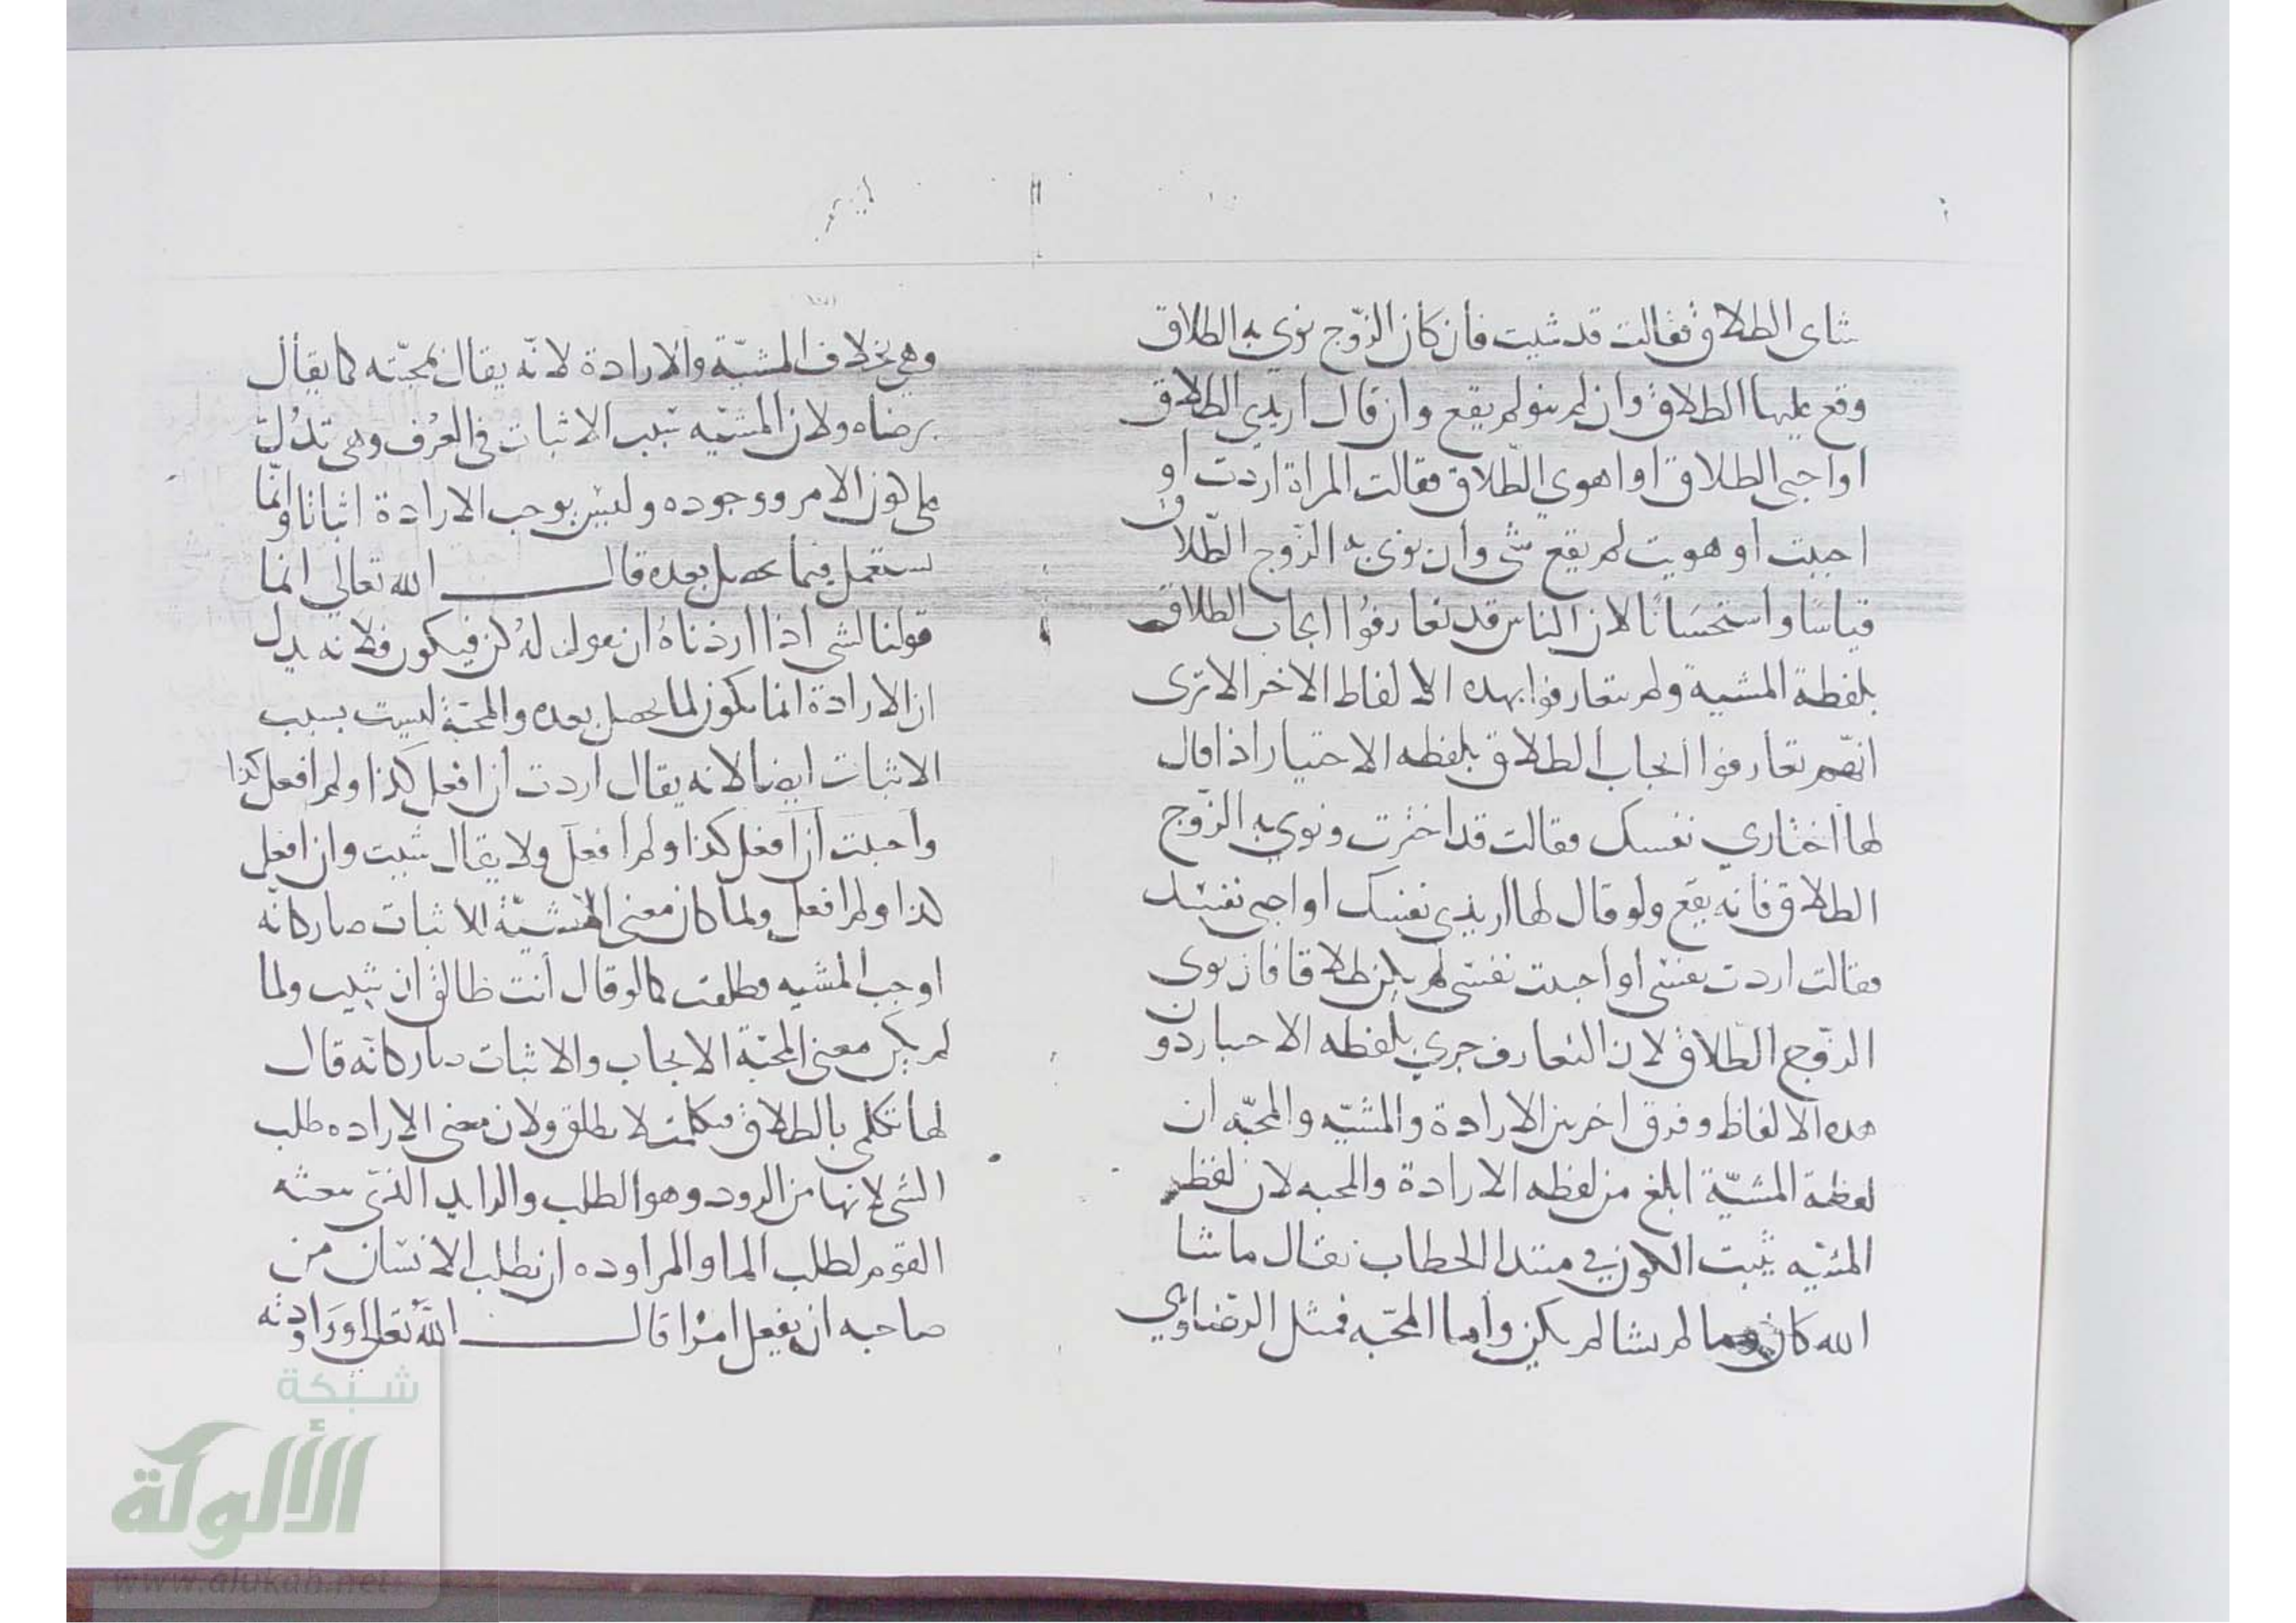 شاى الطلاق فقالت قد شيت فان كان الزوج نوى به الطلاق
وقع عليها الطلاق وان لم ينو لم يقع وان قال اريدي الطلاق
او احبى الطلاق او اهوي الطلاق فقالت المراة اردت او
احببت او هويت لم يقع شى وان نوى به الزوج الطلاق
قياسا واستحسانا لان الناس قد تعارفوا ايجاب الطلاق
بلفظة المشية ولم يتعارفوا بهده الالفاظ الاخر الا ترى
انهم تعارفوا ايجاب الطلاق بلفظه الاختيار اذا قال
لها اختاري نفسك فقالت قد اخترت ونوي به الزوج
الطلاق فانه يقع ولو قال لها اريدي نفسك او احبى نفسك
فقالت اردت نفسى او احببت نفسى لم يكن طلاقا فان نوى
الزوج الطلاق لان التعارف جرى بلفظه الاختيار دون
هده الالفاظ وفرق اخر بين الارادة والمشيه والمحبه ان
لفظة المشية ابلغ من لفظه الارادة والمحبه لان لفظ
المشيه يثبت الكون في مبتدا الخطاب يقال ما شا
الله كان وما لم يشا لم يكن واما المحبه فمثل الرضا وي
وهي بخلاف المشية والارادة لانه يقال بمحبته كما يقال
برضاه ولان المشيه سبب الاثبات في العرف وهى تدل
على كون الامر ووجوده وليس يوجب الارادة اثباتا وانما
يستعمل فيما يحصل بعده قال الله تعالي انما
قولنا لشى اذا اردناه ان نقول له كن فيكون فلانه يدل
ان الارادة انما يكون لما يحصل بعده والمحبة ليست بسبب
الاثبات ايضا لانه يقال اردت ان افعل كذا ولم افعل كذا
واحببت ان افعل كذا ولم افعل ولا يقال شيت وان افعل
كذا ولم افعل ولما كان معنى المشية الاثبات صار كانه
اوجب المشيه فطلقت كما لو قال أنت طالق ان شيت ولما
لم يكن معنى المحبة الايجاب والاثبات صار كانه قال
لها تكلمى بالطلاق فتكلمت لا يطلق ولان معنى الاراده طلب
الشى لانها من الرود وهو الطلب والرايد الذى يبعثه
القوم لطلب الما والمراوده ان يطلب الانسان من
صاحبه ان يفعل امرا قال الله تعالى وراودته
شبكة
الألوكة
www.alukah.net